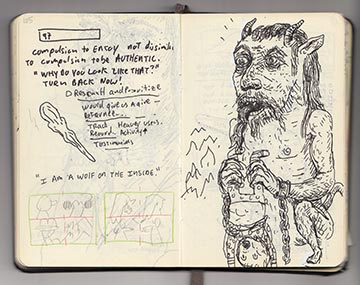 105
97
compulsion to ENJOY not dissimilar
to compulsion to be AUTHENTIC.
"WHY DO YOU LOOK LIKE THAT?"
TURN BACK NOW!
Research and Prioritize
would give us a give -
Internet
Track Heavy users.
Record Activity
Testimonies
"I AM A WOLF ON THE INSIDE"